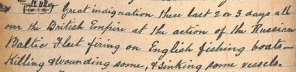 Great indignation these last 2 or 3 days all
over the British Empire at the action of the Russian
Baltic Fleet firing on English fishing boats—
Killing & wounding some, & sinking some vessels.